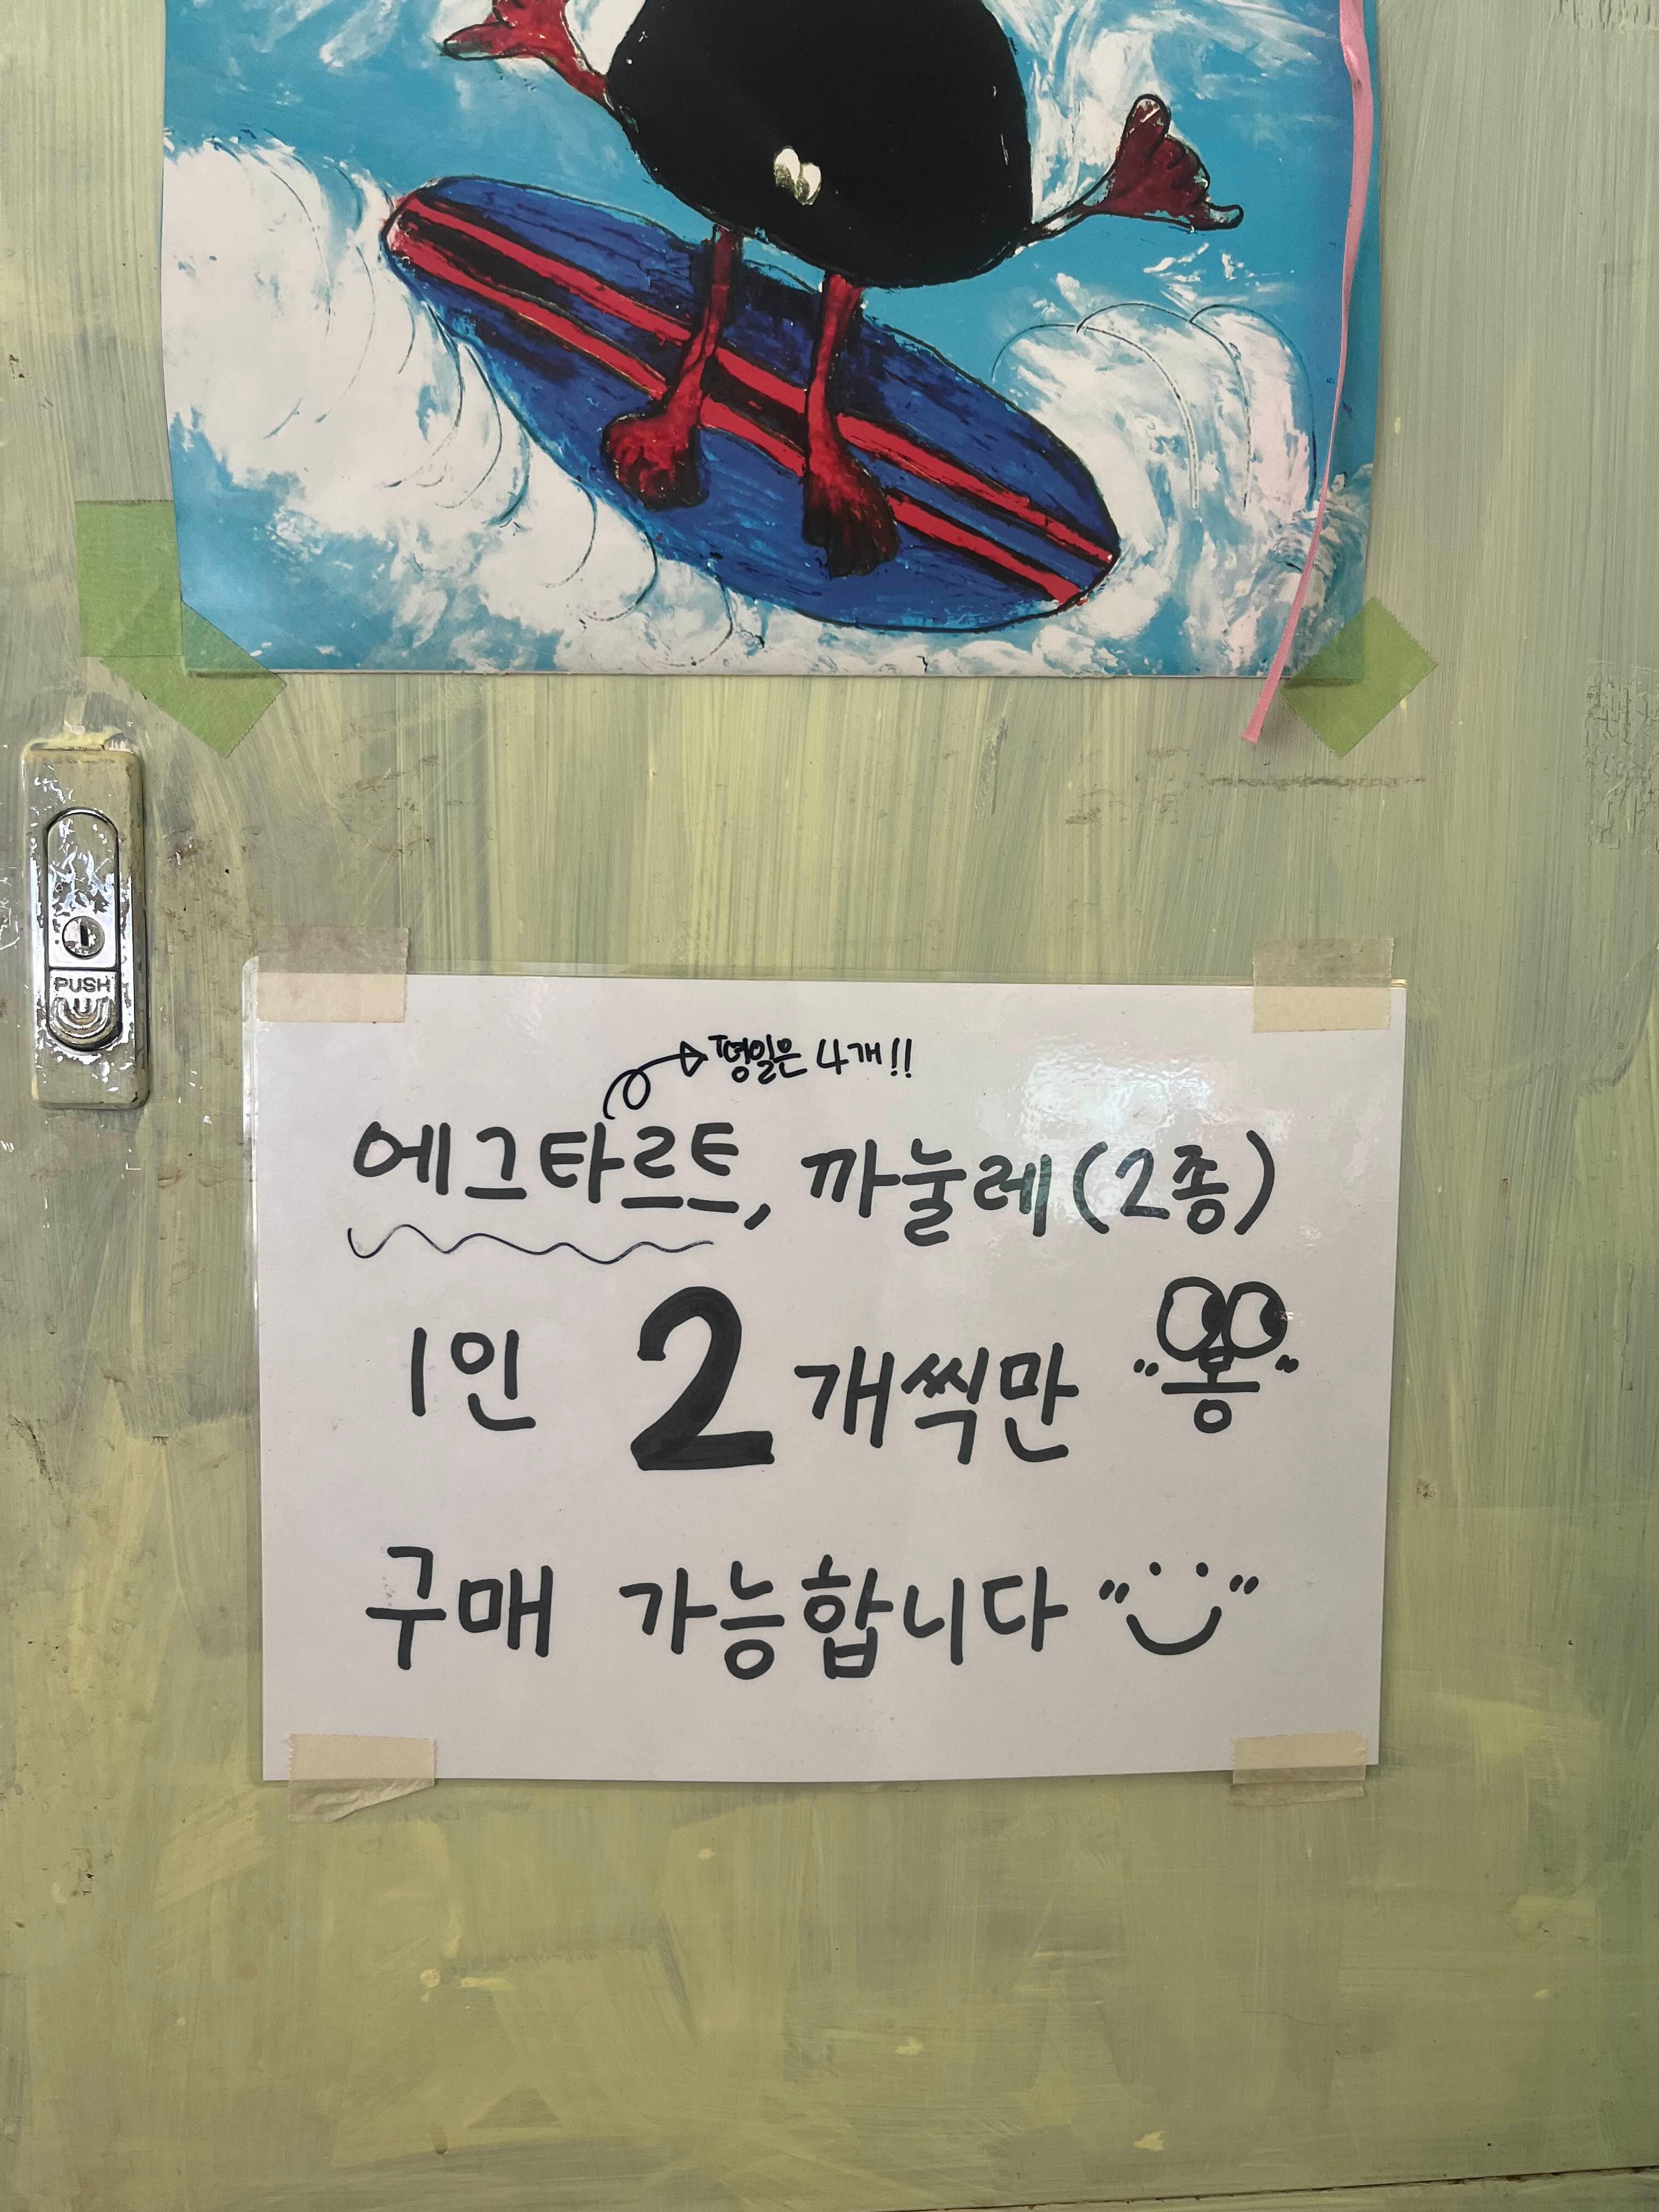 PUSH
평일은 4개!!
에그타르트, 까눌레(2종)
1인 2개씩만 "봉"
구매 가능합니다 " "